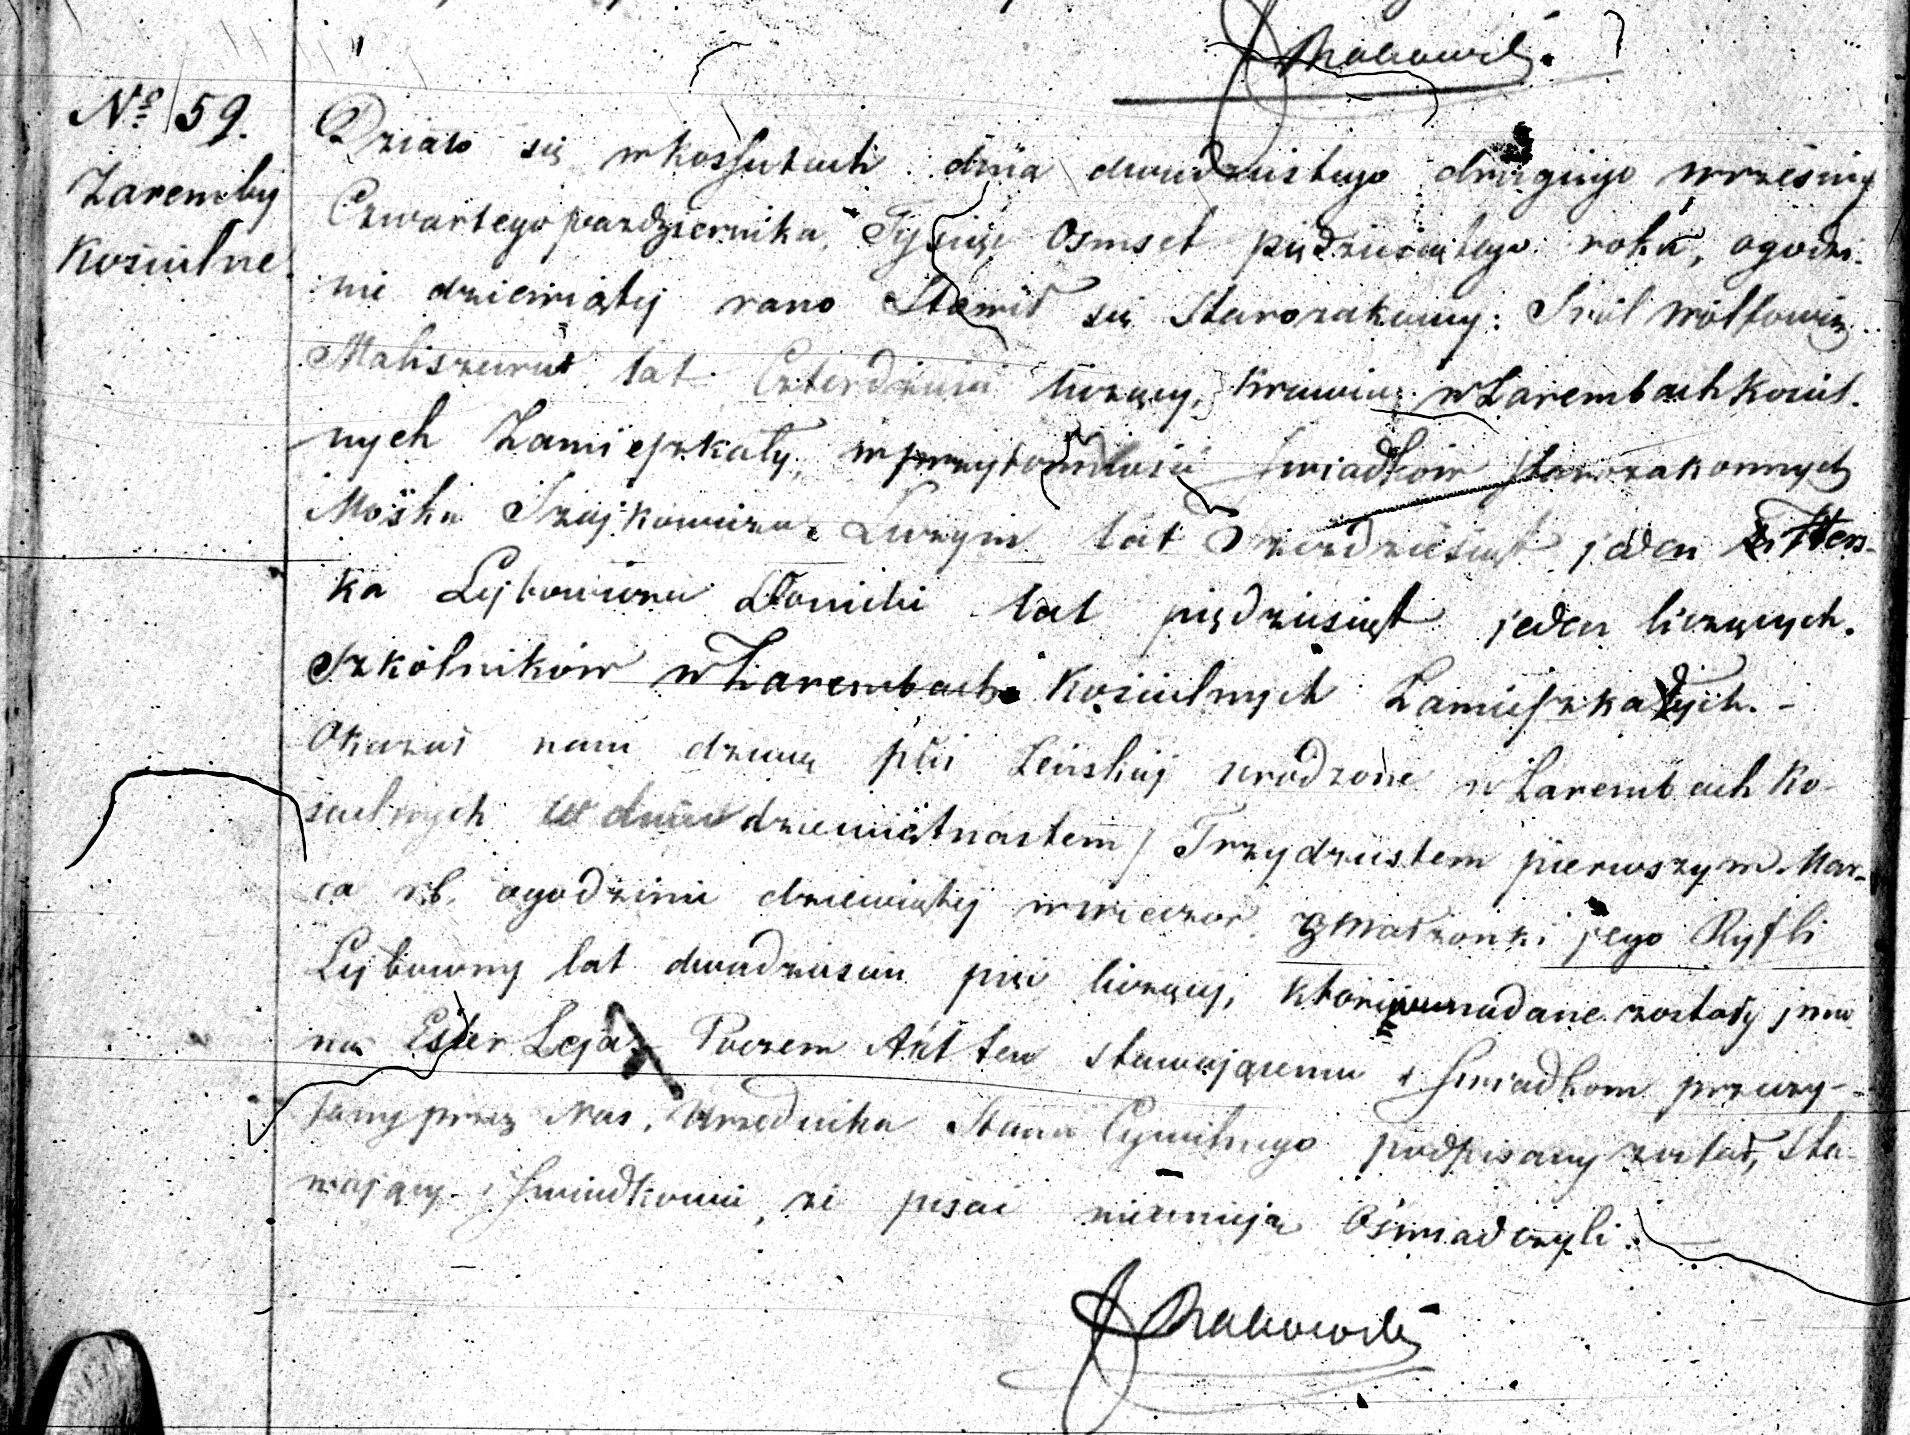 Nº 59.
Zaremby
Kościelne
Działo się w Kossutach dnia dwudziestego drugiego września
Czwartego pazdziernika, Tysiąc Osmset piędziesiątego roku, ogodzi-
nie dziewiątej rano Stawił się Starozakonny: Sról Wolfowicz
Maliszewit lat Czterdzieści liczący, Krawiec w Zarembach Kościel-
nych Zamieszkały, w przytomności Świadków Starozakonnych
Mośka Szajkowicza Liczym lat jeden i Hers-
ka Lejbowicza Słonicki lat piędziesiąt jeden liczących.
Szkólników w Zarembach Kościelnych Zamieszkałych. -
Okazał nam dziecię płci Żeńskiej urodzone w Zarembach Ko-
ścielnych w dniu dziewiętnastem / Trzydziestem pierwszym Mar-
ca r.b. ogodzinie dziewiątej wieczor z Małżonki jego Ryfli
Lejbowny lat dwadzieścia pięć liczącej, któremu nadane zostały jmio-
na Ester Leja. Poczem Akt ten stawającemu i Świadkom przeczy-
tany przez Nas, Urzędnika Stanu Cywilnego podpisany został, Sta-
wający i Świadkowie, że pisać nieumieją Oświadczyli.